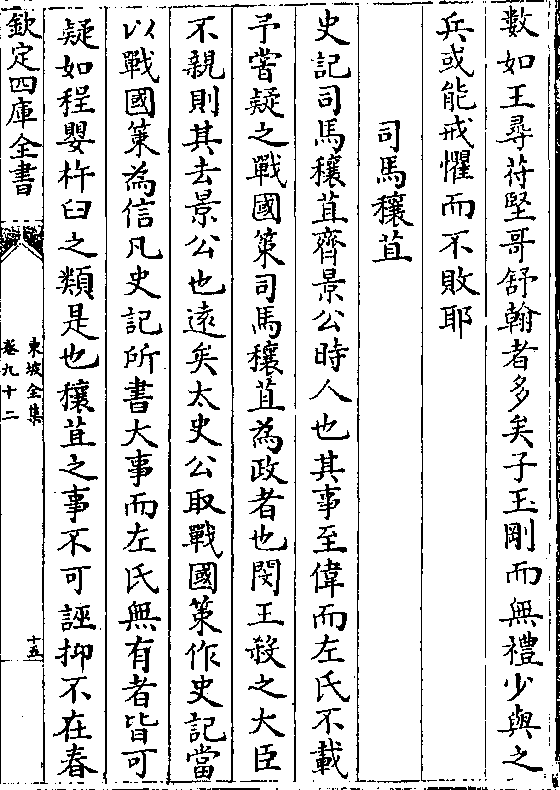 數如王尋苻堅哥舒翰者多矣子玉剛而無禮少與之
兵或能戒懼而不敗耶
司馬穰苴
史記司馬穰苴齊景公時人也其事至偉而左氏不載
予嘗疑之戰國策司馬穰苴為政者也閔王殺之大臣
不親則其去景公也遠矣太史公取戰國策作史記當
以戰國策為信凡史記所書大事而左氏無有者皆可
疑如程嬰杵臼之類是也穰苴之事不可誣抑不在春
欽定四庫全書
東坡全集
卷九十二
十五